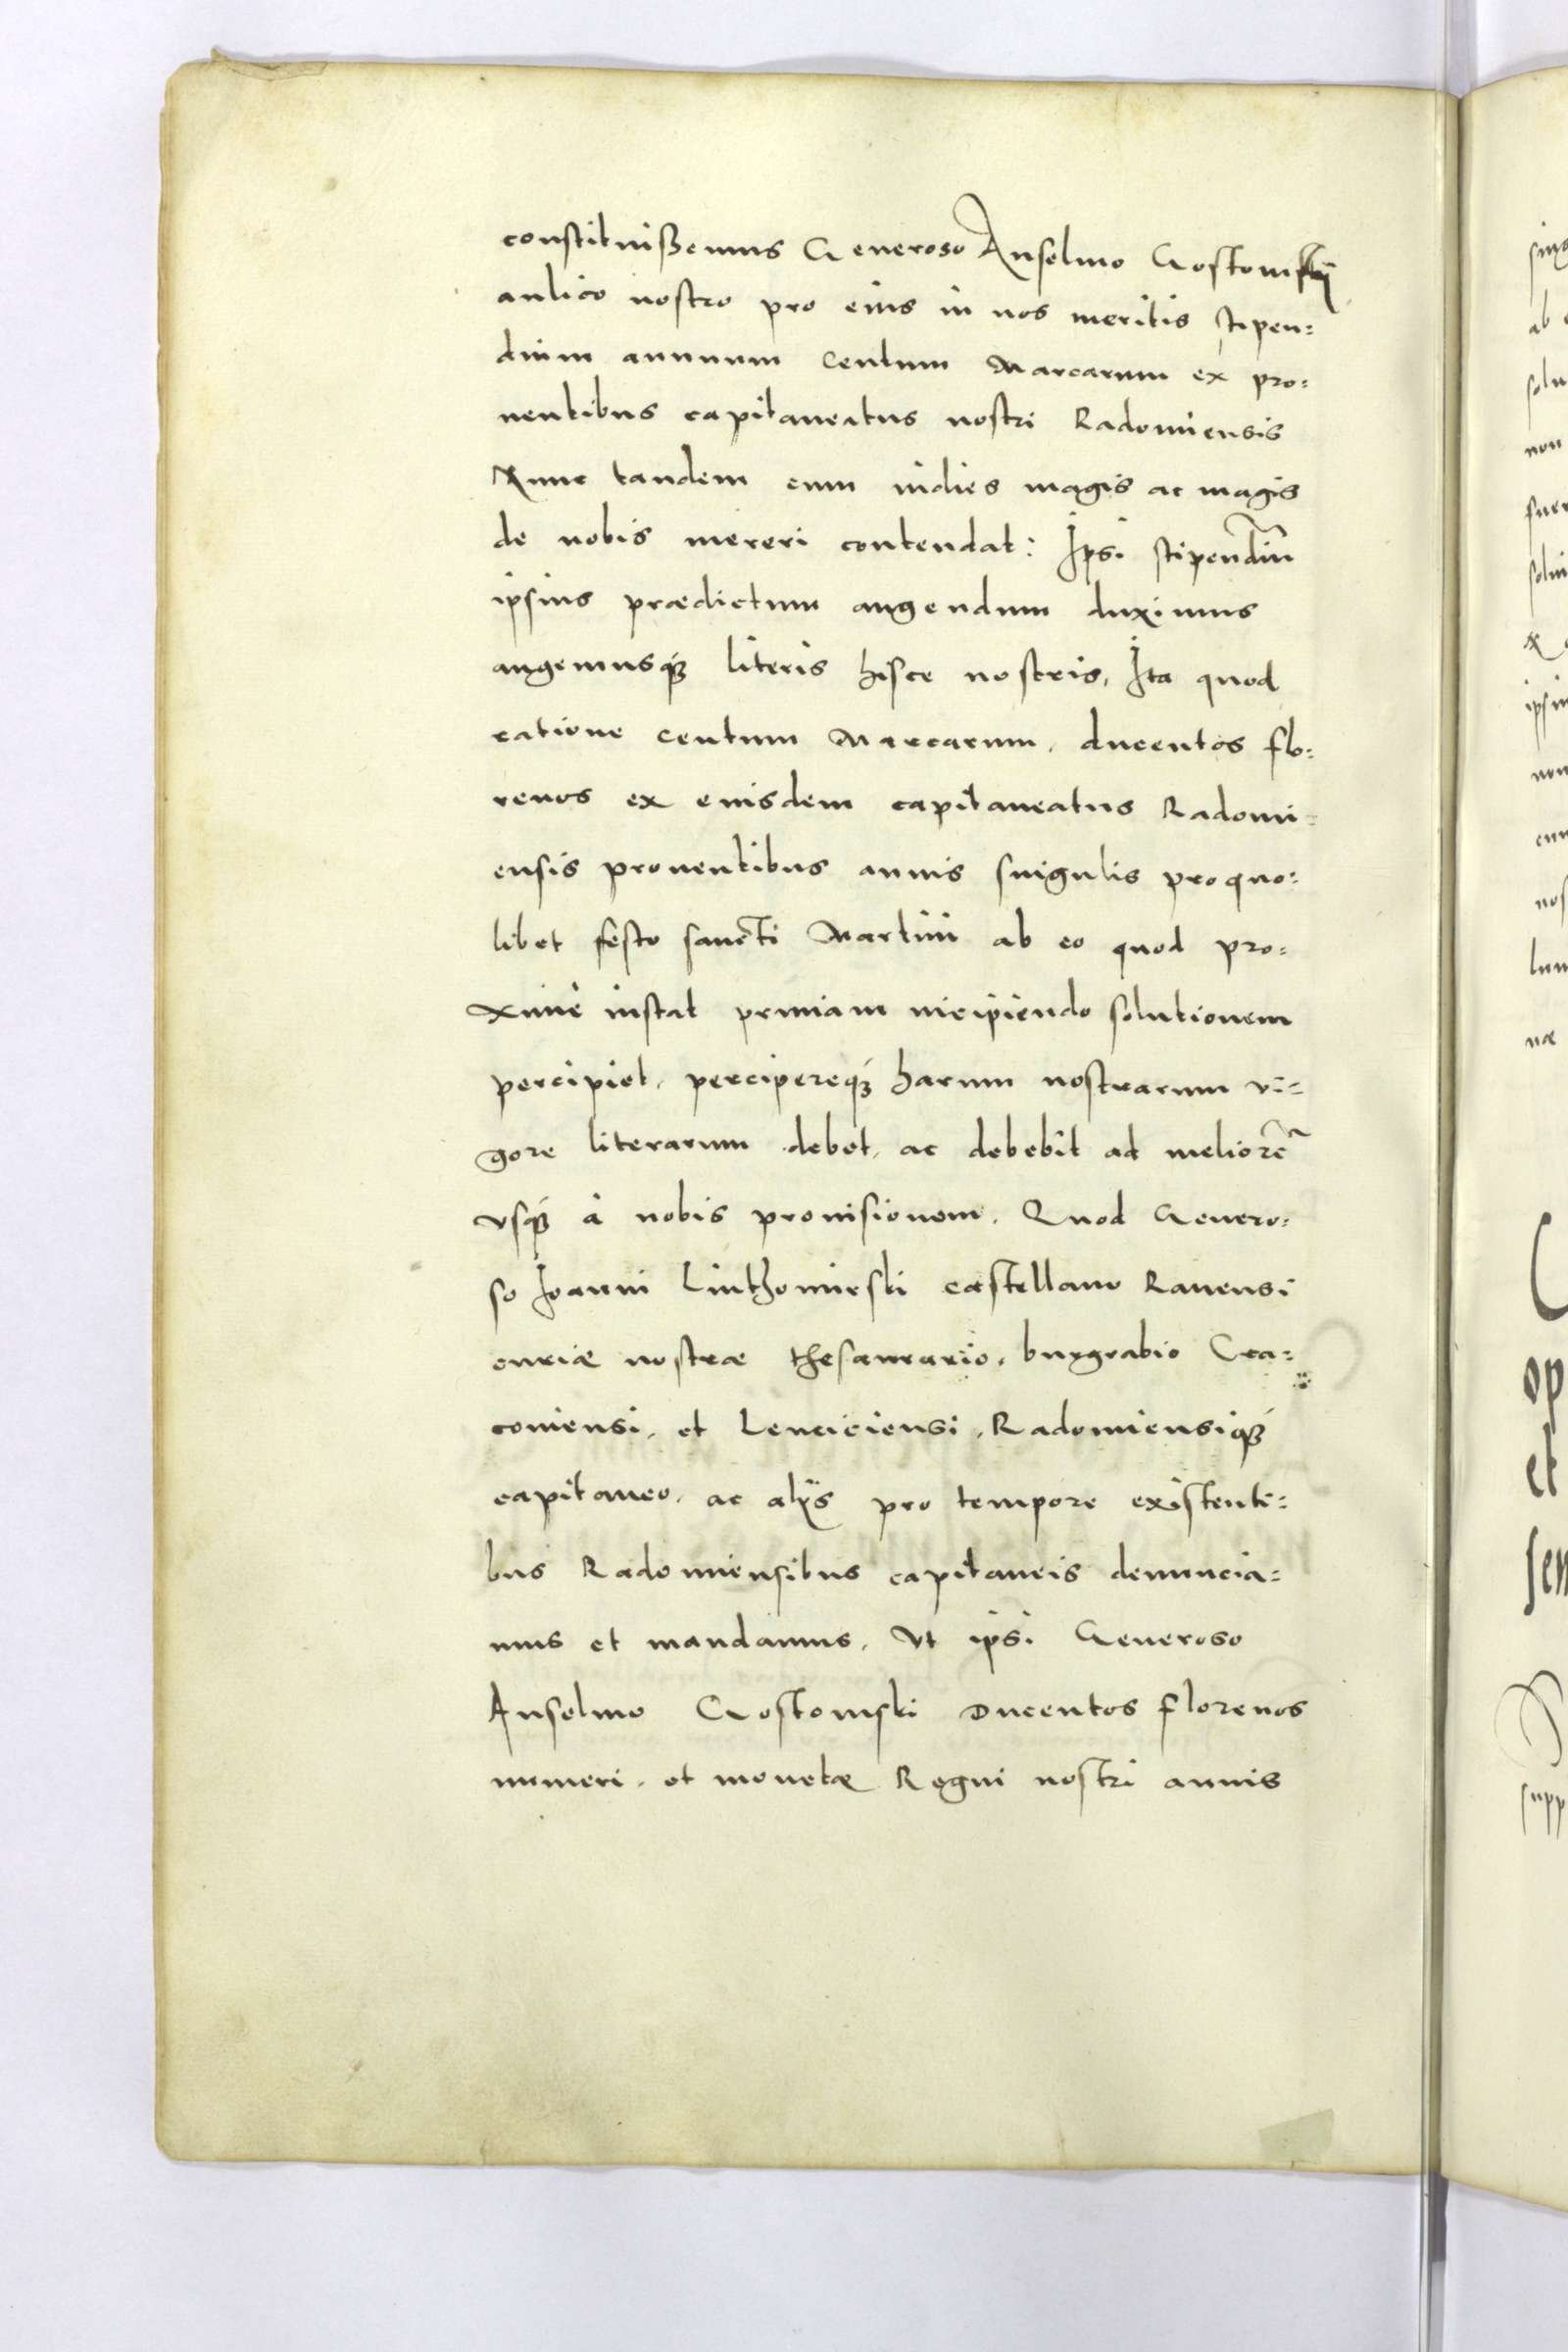 constituißemus Generoso Anselmo Gostomskij
aulico nostro pro eius in nos meritis stipen=
dium annuum Centum Marcarum ex pro=
uentibus capitaneatus nostri Radomiensis
Nunc tandem cum indies magis ac magis
de nobis mereri contendat: Ipsi stipendiũ
ipsius prædictum augendum duximus
augemusqꝫ literis hisce nostris, Ita quod
ratione centum Marcarum, ducentos flo=
renos ex eiusdem capitaneatus Radomi=
ensis prouentibus annis singulis pro quo=
libet festo sancti Martini ab eo quod pro=
ximè instat primam incipiendo solutionem
percipiet, percipereqꝫ harum nostrarum vi=
gore literarum debet, ac debebit ad meliorẽ
vsqꝫ à nobis prouisionem. Quod Genero=
so Ioanni Linthomirski castellano Rauensi
curiæ nostræ thesaurario, burgrabio Cra=
couiensi, et Lenciciensi, Radomiensiqꝫ
capitaneo, ac alijs pro tempore existenti=
bus Radomiensibus capitaneis denuncia=
mus et mandamus, vt ipsi Generoso
Anselmo Gostomski Ducentos florenos
numeri, et monetæ Regni nostri annis